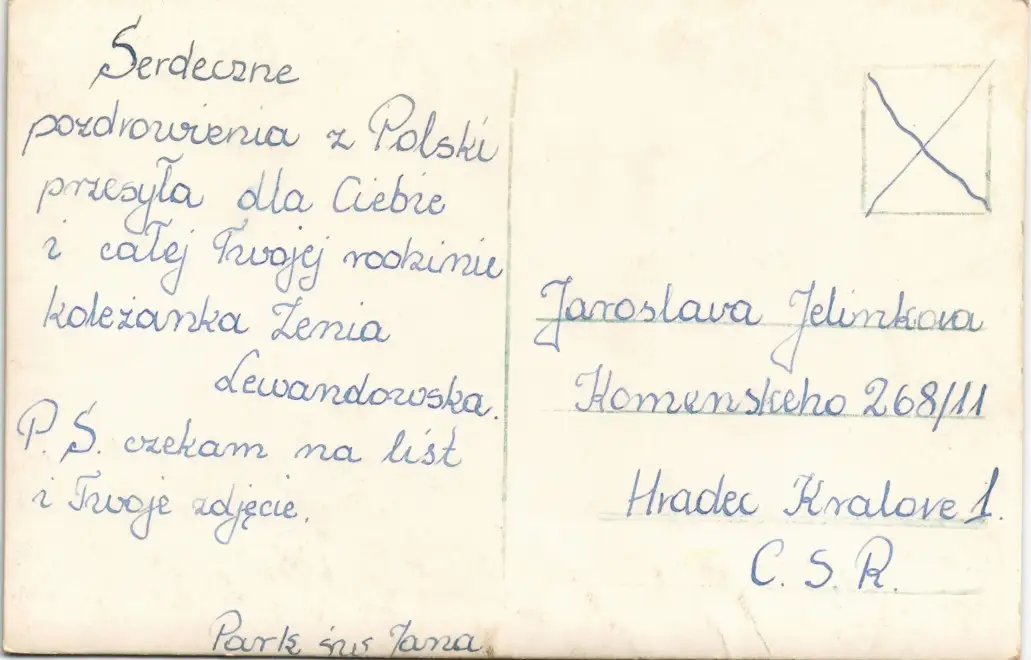 Serdeczne
pozdrowienia z Polski
przesyła dla Ciebie
i całej Twojej rodzinie
koleżanka Zenia
Lewandowska.
P.S. czekam na list
i Twoje zdjęcie.
Park św Jana
Jaroslava Jelinkova
Komenskeho 268/11
Hradec Kralove 1.
C. S. R.